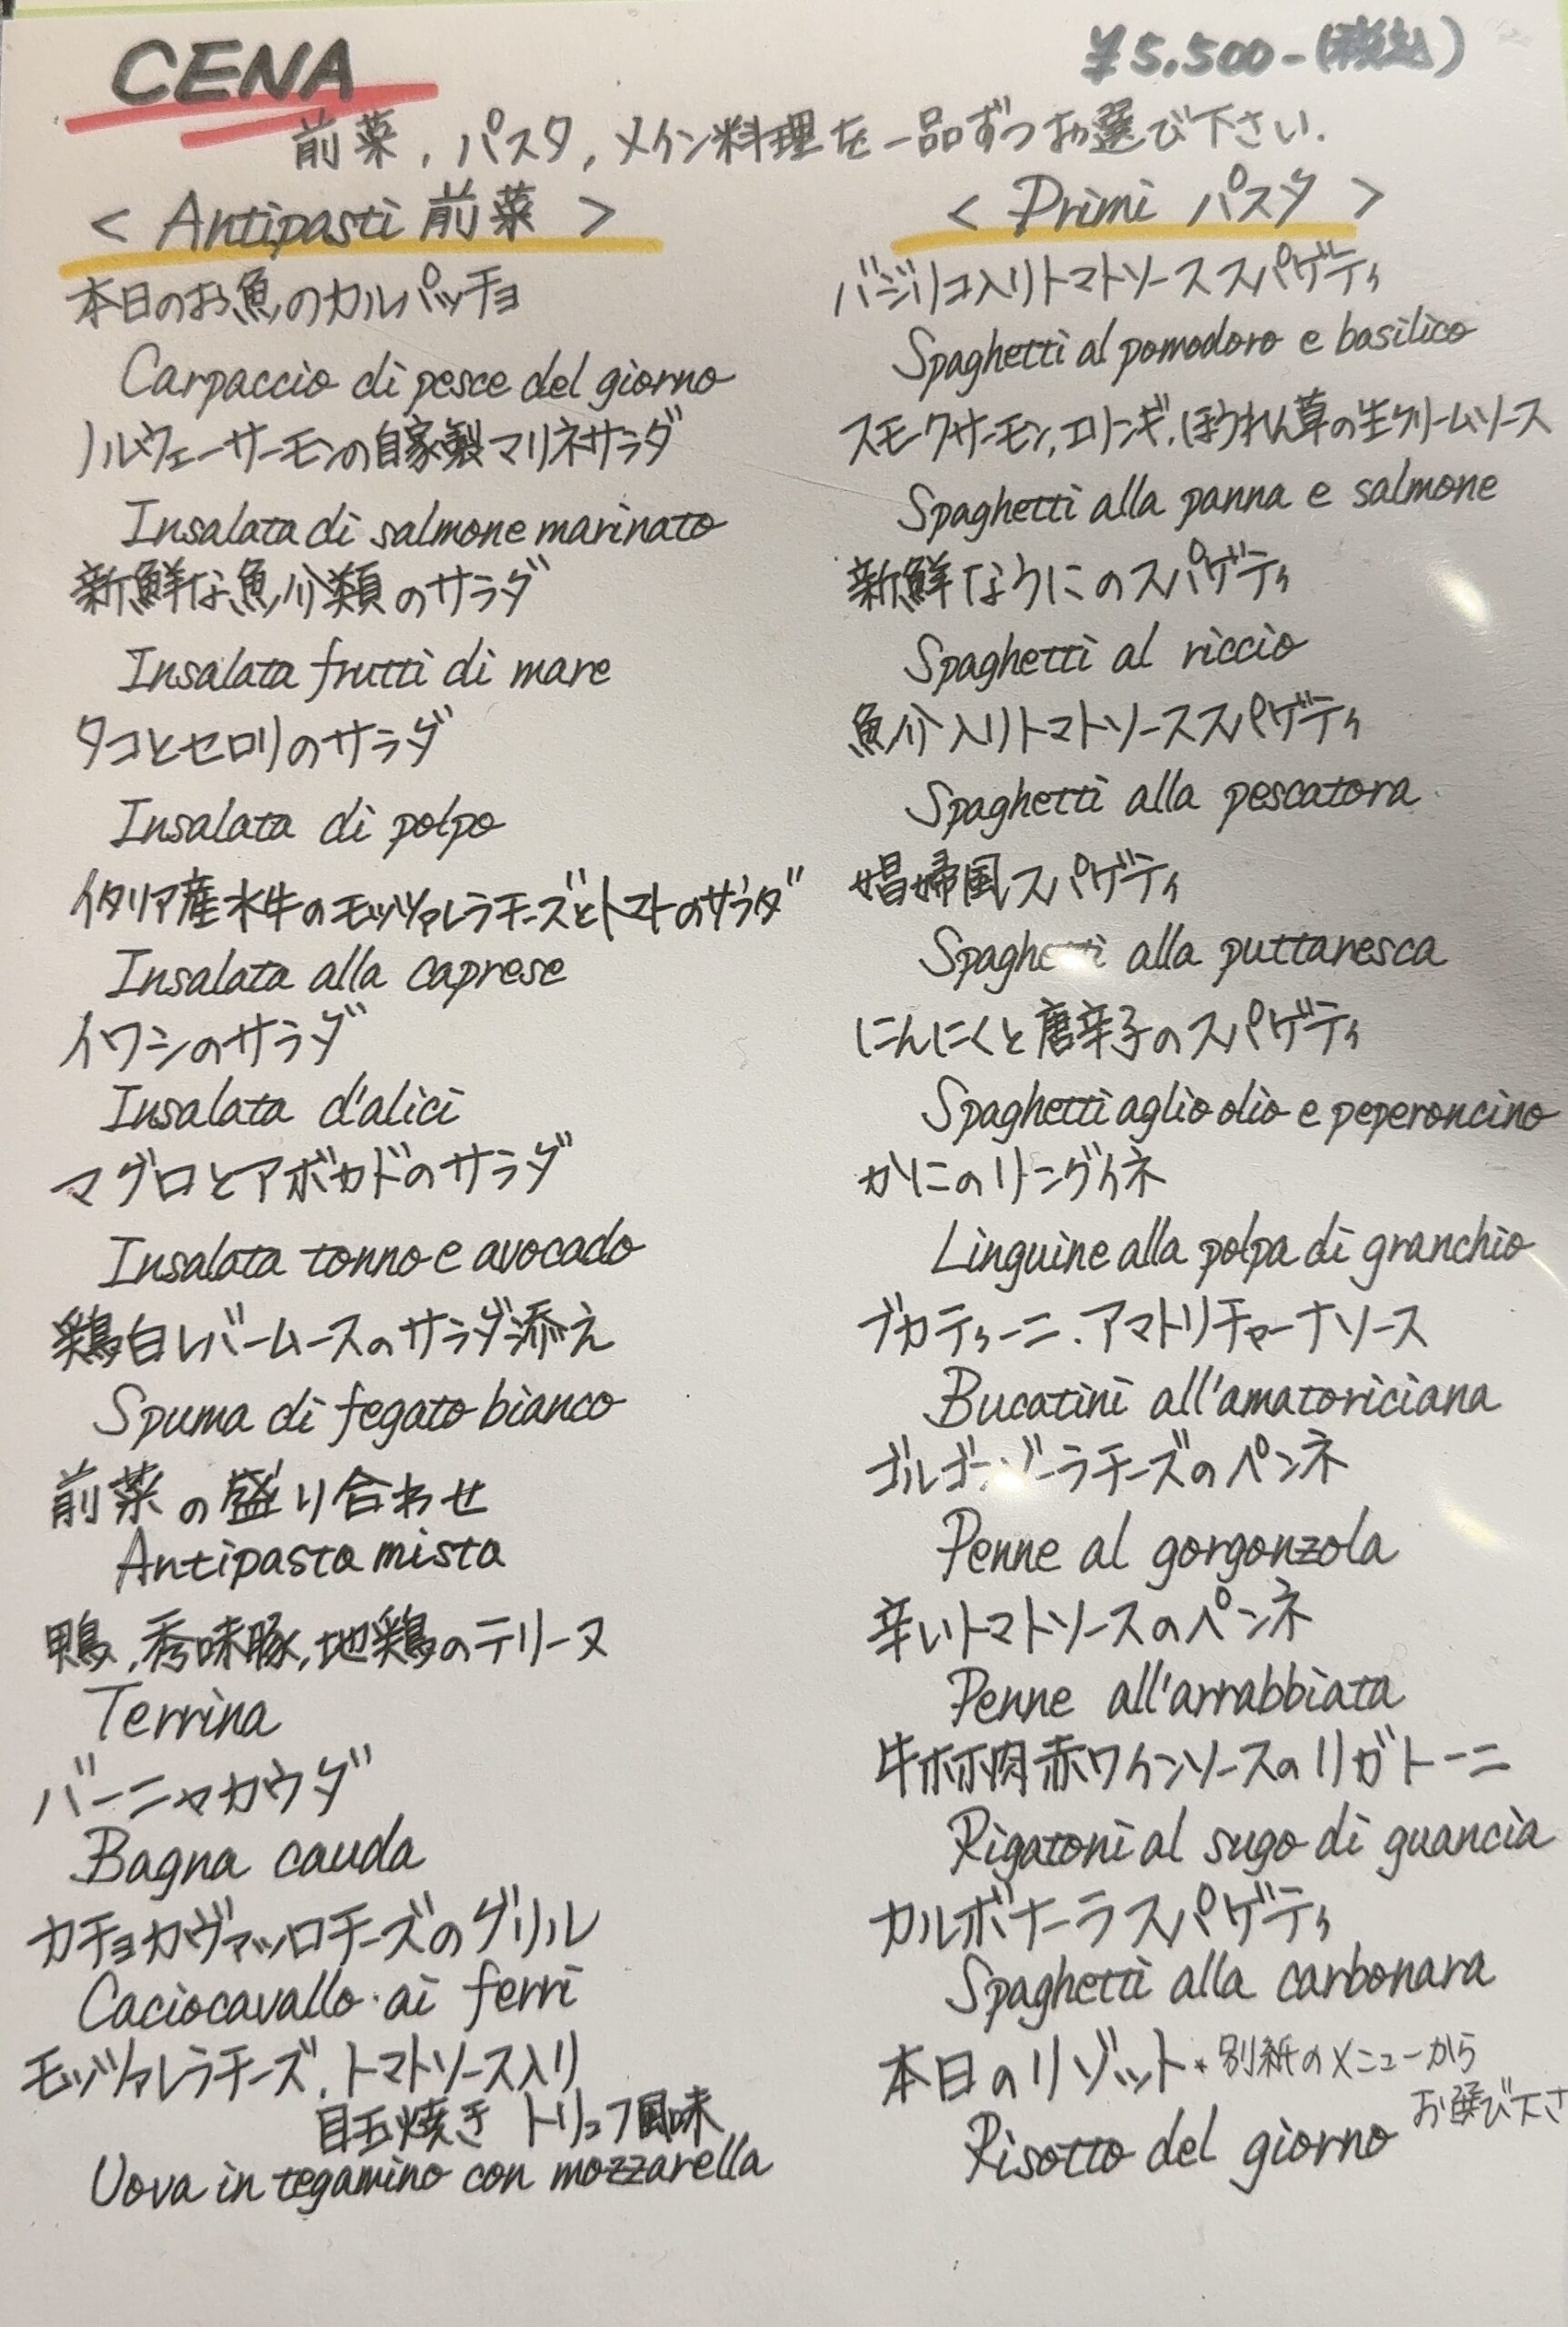 CENA
¥5,500-(税込)
前菜,パスタ,メイン料理を一品ずつお選び下さい.
< Antipasti 前菜 >
本日のお魚のカルパッチョ
Carpaccio di pesce del giorno
ノルウェーサーモンの自家製マリネサラダ
Insalata di salmone marinato
新鮮な魚介類のサラダ
Insalata frutti di mare
タコとセロリのサラダ
Insalata di polpo
イタリア産水牛のモッツァレラチーズとトマトのサラダ
Insalata alla caprese
イワシのサラダ
Insalata d'alici
マグロとアボカドのサラダ
Insalata tonno e avocado
鶏白レバームースのサラダ添え
Spuma di fegato bianco
前菜の盛り合わせ
Antipasta mista
鴨,秀味豚,地鶏のテリーヌ
Terrina
バーニャカウダ
Bagna cauda
カチョカヴァッロチーズのグリル
Caciocavallo・ai ferri
モッツァレラチーズ,トマトソース入り
目玉焼き トリュフ風味
Uova in tegamino con mozzarella
< Primi パスタ >
バジリコ入りトマトソーススパゲティ
Spaghetti al pomodoro e basilico
スモークサーモン,エリンギ,ほうれん草の生クリームソース
Spaghetti alla panna e salmone
新鮮なうにのスパゲティ
Spaghetti al riccio
魚介入りトマトソーススパゲティ
Spaghetti alla pescatora
娼婦風スパゲティ
Spaghetti alla puttanesca
にんにくと唐辛子のスパゲティ
Spaghetti aglio olio e peperoncino
かにのリングイネ
Linguine alla polpa di granchio
ブカティーニ.アマトリチャーナソース
Bucatini all'amatoriciana
ゴルゴンゾーラチーズのペンネ
Penne al gorgonzola
辛いトマトソースのペンネ
Penne all'arrabbiata
牛ホホ肉赤ワインソースのリガトーニ
Rigatoni al sugo di guancia
カルボナーラスパゲティ
Spaghetti alla carbonara
本日のリゾット*別紙のメニューから
お選び下さ
Risotto del giorno